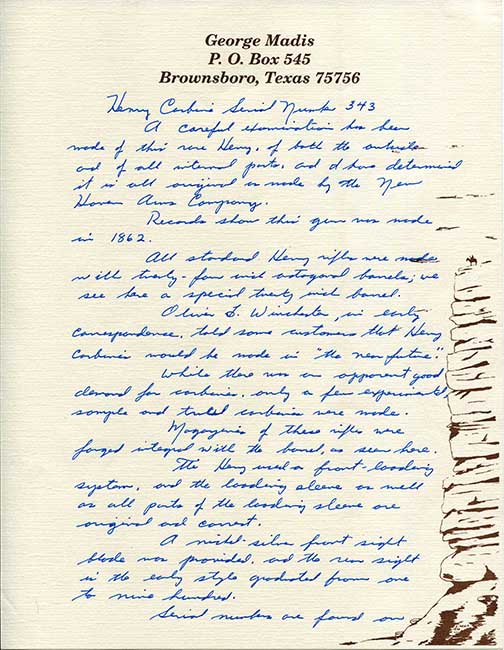 George Madis
P. O. Box 545
Brownsboro, Texas 75756
Henry Carbine Serial Number 343
A careful examination has been
made of this rare Henry, of both the outside
and of all internal parts, and I have determined
it is all original as made by the New
Haven Arms Company.
Records show this gun was made
in 1862.
All standard Henry rifles were made
with twenty-four inch octagonal barrels; we
see here a special twenty inch barrel.
Oliver F. Winchester, in early
correspondence, told some customers that Henry
Carbines would be made in "the near future".
While there was an apparent good
demand for carbines, only a few experimental,
sample and trial carbines were made.
Magazines of these rifles were
forged integral with the barrel, as seen here.
The Henry used a front-loading
system, and the loading sleeve as well
as all parts of the loading sleeve are
original and correct.
A nickel-silver front sight
blade was provided, and the rear sight
is the early style graduated from one
to nine hundred.
Serial numbers are found on